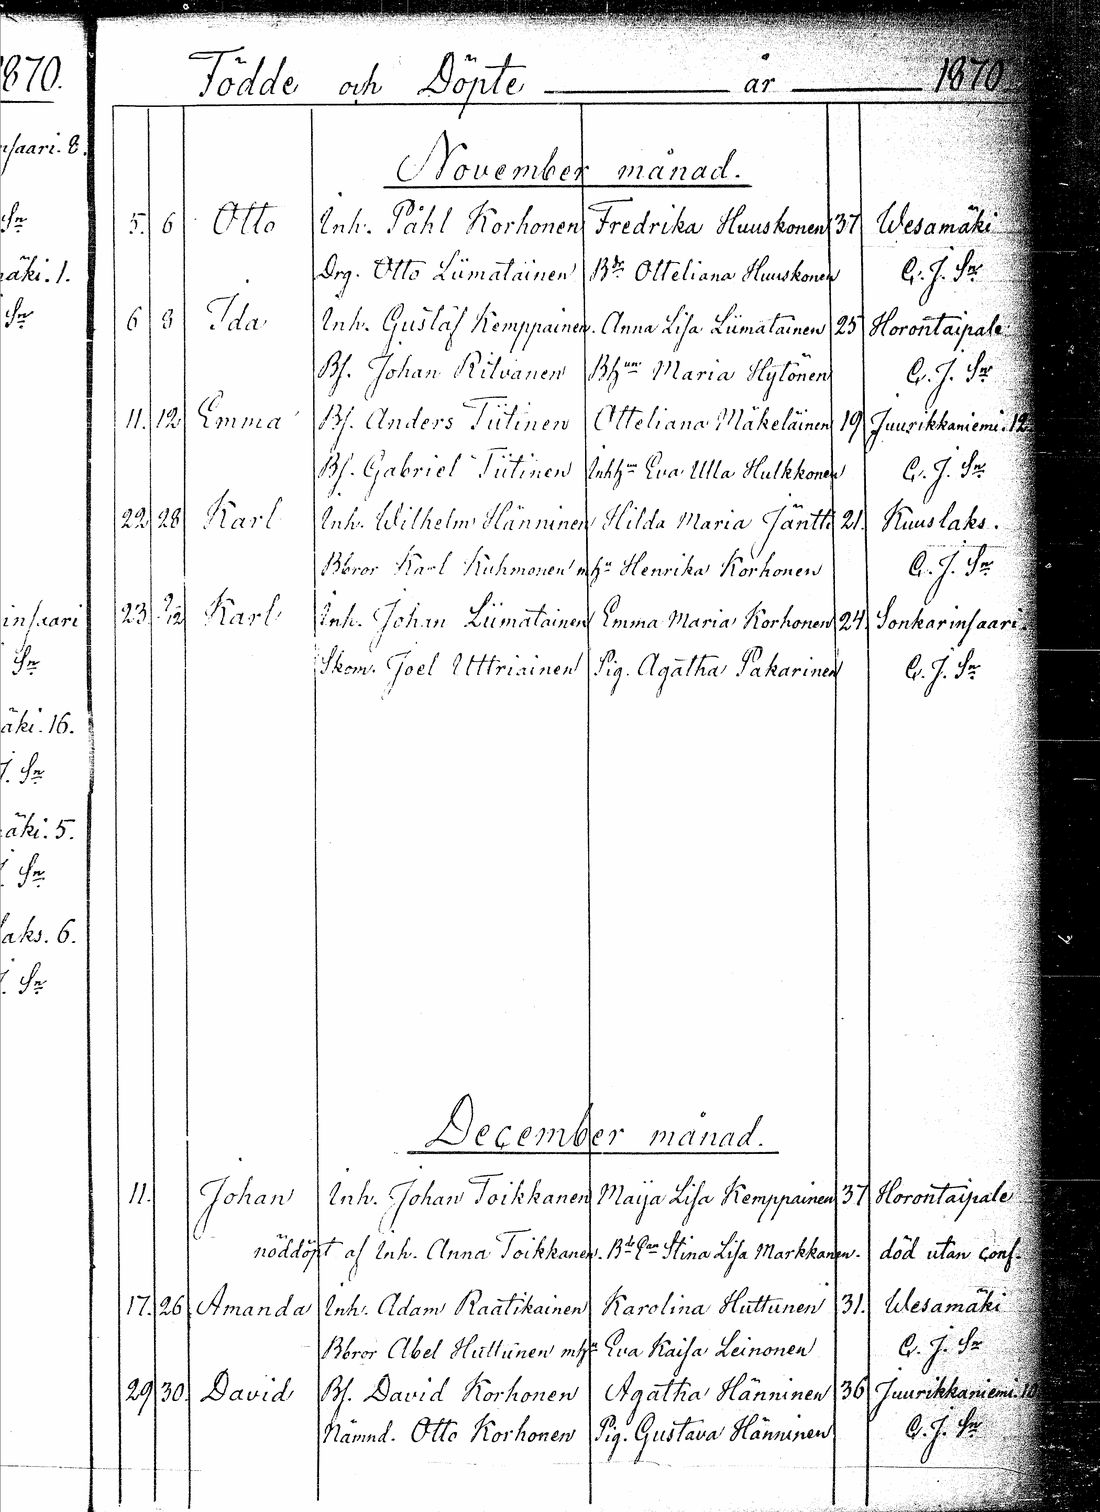 1870.
nsaari. 8.
Sn
mäki. 1.
Sn
insaari
Sn
äki. 16.
J. Sn
äki. 5.
J. Sn
laks. 6.
J. Sn
Födde och Döpte år 1870
November månad.
5. 6 Otto Inh. Påhl Korhonen Fredrika Huuskonen 37 Wesamäki
Drg. Otto Liimatainen Bdr Otteliana Huuskonen C. J. Sn
6 8 Ida Inh. Gustaf Kemppainen. Anna Lisa Liimatainen 25 Horontaipale
Bf. Johan Ritvanen Bhun Maria Hytönen C. J. Sn
11. 12 Emma Bf. Anders Tiitinen Otteliana Mäkeläinen 19 Juurikkaniemi. 12
Bf. Gabriel Tiitinen Inhhun Eva Ulla Hulkkonen C. J. Sn
22 28 Karl Inh. Wilhelm Hänninen Hilda Maria Jäntti 21. Kuuslaks.
Bbror Karl Kuhmonen mhu Henrika Korhonen C. J. Sn
23. 2/12 Karl Inh. Johan Liimatainen Emma Maria Korhonen 24. Sonkarinsaari.
Skom. Joel Uttriainen Pig. Agatha Pakarinen C. J. Sn
December månad.
11. Johan Inh. Johan Toikkanen Maija Lisa Kemppainen 37 Horontaipale
nöddöpt af Inh. Anna Toikkanen. Stina Lisa Markkanen. död utan conf.
17. 26 Amanda Inh. Adam Raatikainen Karolina Huttunen 31. Wesamäki
Bbror Abel Huttunen mhu Eva Kaisa Leinonen C. J. Sn
29 30. David Bf. David Korhonen Agatha Hänninen 36 Juurikkaniemi. 10
Nämnd. Otto Korhonen Pig. Gustava Hänninen C. J. Sn